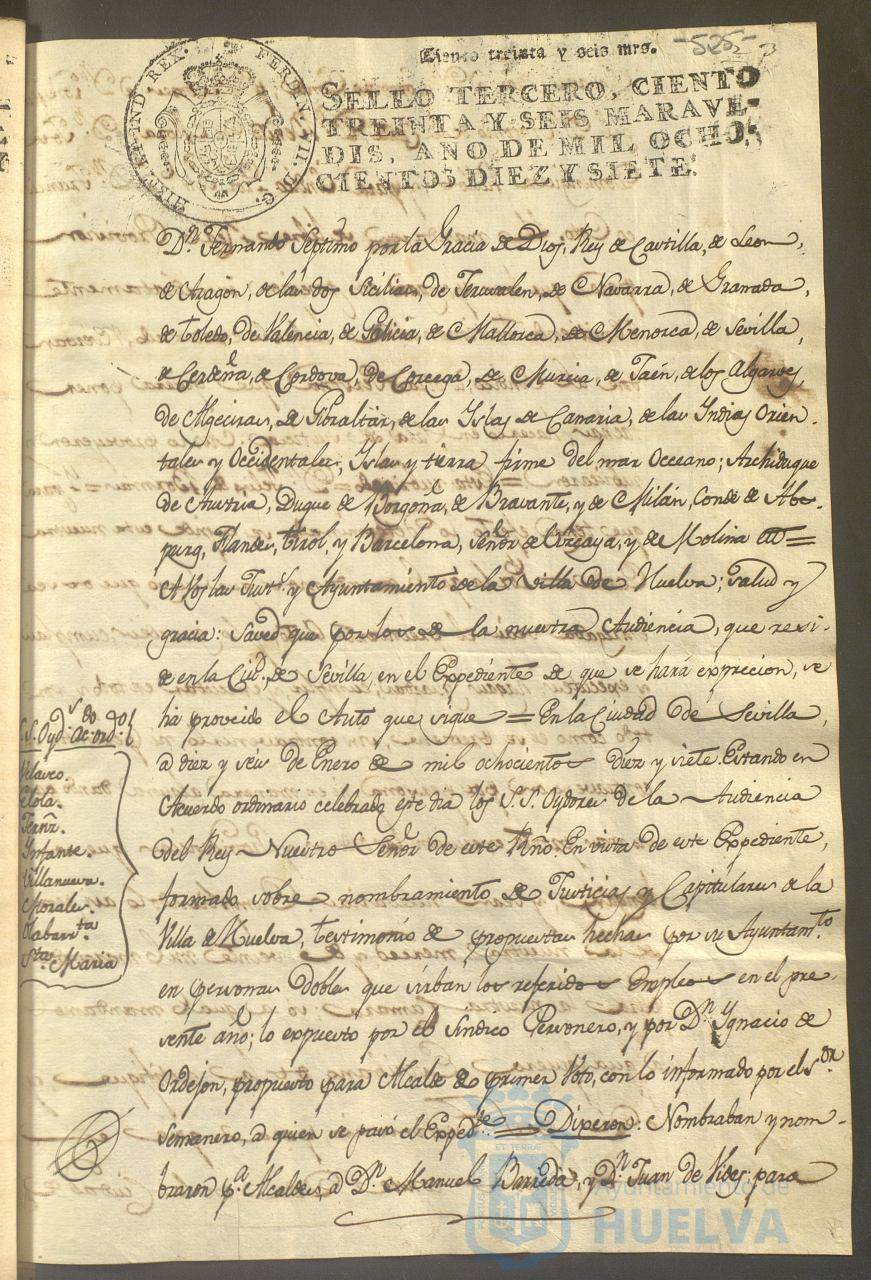 -525-
Ciento treinta y seis mrs.
HISP. ET IND. REX. FERDIN. VII. D. G.
SELLO TERCERO, CIENTO
TREINTA Y SEIS MARAVE-
DIS, AÑO DE MIL OCHO-
CIENTOS DIEZ Y SIETE.
Dn. Fernando Septimo por la Gracia de Dios, Rey de Castilla, de Leon,
de Aragón, de las dos Sicilias, de Jerusalen, de Navarra, de Granada,
de Toledo, de Valencia, de Galicia, de Mallorca, de Menorca, de Sevilla,
de Cerdeña, de Cordova, de Corcega, de Murcia, de Jaén, de los Algarves,
de Algeciras, de Gibraltár, de las Yslas de Canaria, de las Yndias Orien-
tales y Occidentales, Yslas y tierra firme del mar Occeano; Archiduque
de Austria, Duque de Borgoña, de Bravante, y de Milán, Conde de Abs-
purg, Flandes, Tirol, y Barcelona, Señor de Vizcaya, y de Molina etc=
A Vos las Justs. y Ayuntamiento de la Villa de Huelva; Salud y
gracia: Saved que por los de la nuestra Audiencia, que resi-
de en la Ciud. de Sevilla, en el Expediente de que se hará exprecion, se
ha proveido el Auto que sigue = En la Ciudad de Sevilla,
a diez y seis de Enero de mil ochocientos diez y siete. Estando en
Acuerdo ordinario celebrado este dia los S.S. Oydores de la Audiencia
del Rey Nuestro Señor de este Rño. En vista de este Expediente,
formado sobre nombramiento de Justicias y Capitulares de la
Villa de Huelva, testimonio de propuestas hechas por su Ayuntamto.
en personas dobles que sirban los referidos Empleos en el pre-
sente año; lo expuesto por el Sindico Personero, y por Dn. Ygnacio de
Ordejon, propuesto para Alcalde de primer Voto, con lo informado por el Sor.
Semanero, a quien se pasó el Expedte. = Digeron: Nombraban y nom-
braron pa. Alcaldes, a Dn. Manuel Barreda, y Dn. Juan de Vides; para
S.S. Oyds. do Ac. ordo.
Velasco.
Elola.
Fernz.
Ynfante.
Villanueva.
Morales.
Olabarrta.
Sta. Maria
Ayuntamiento de
HUELVA